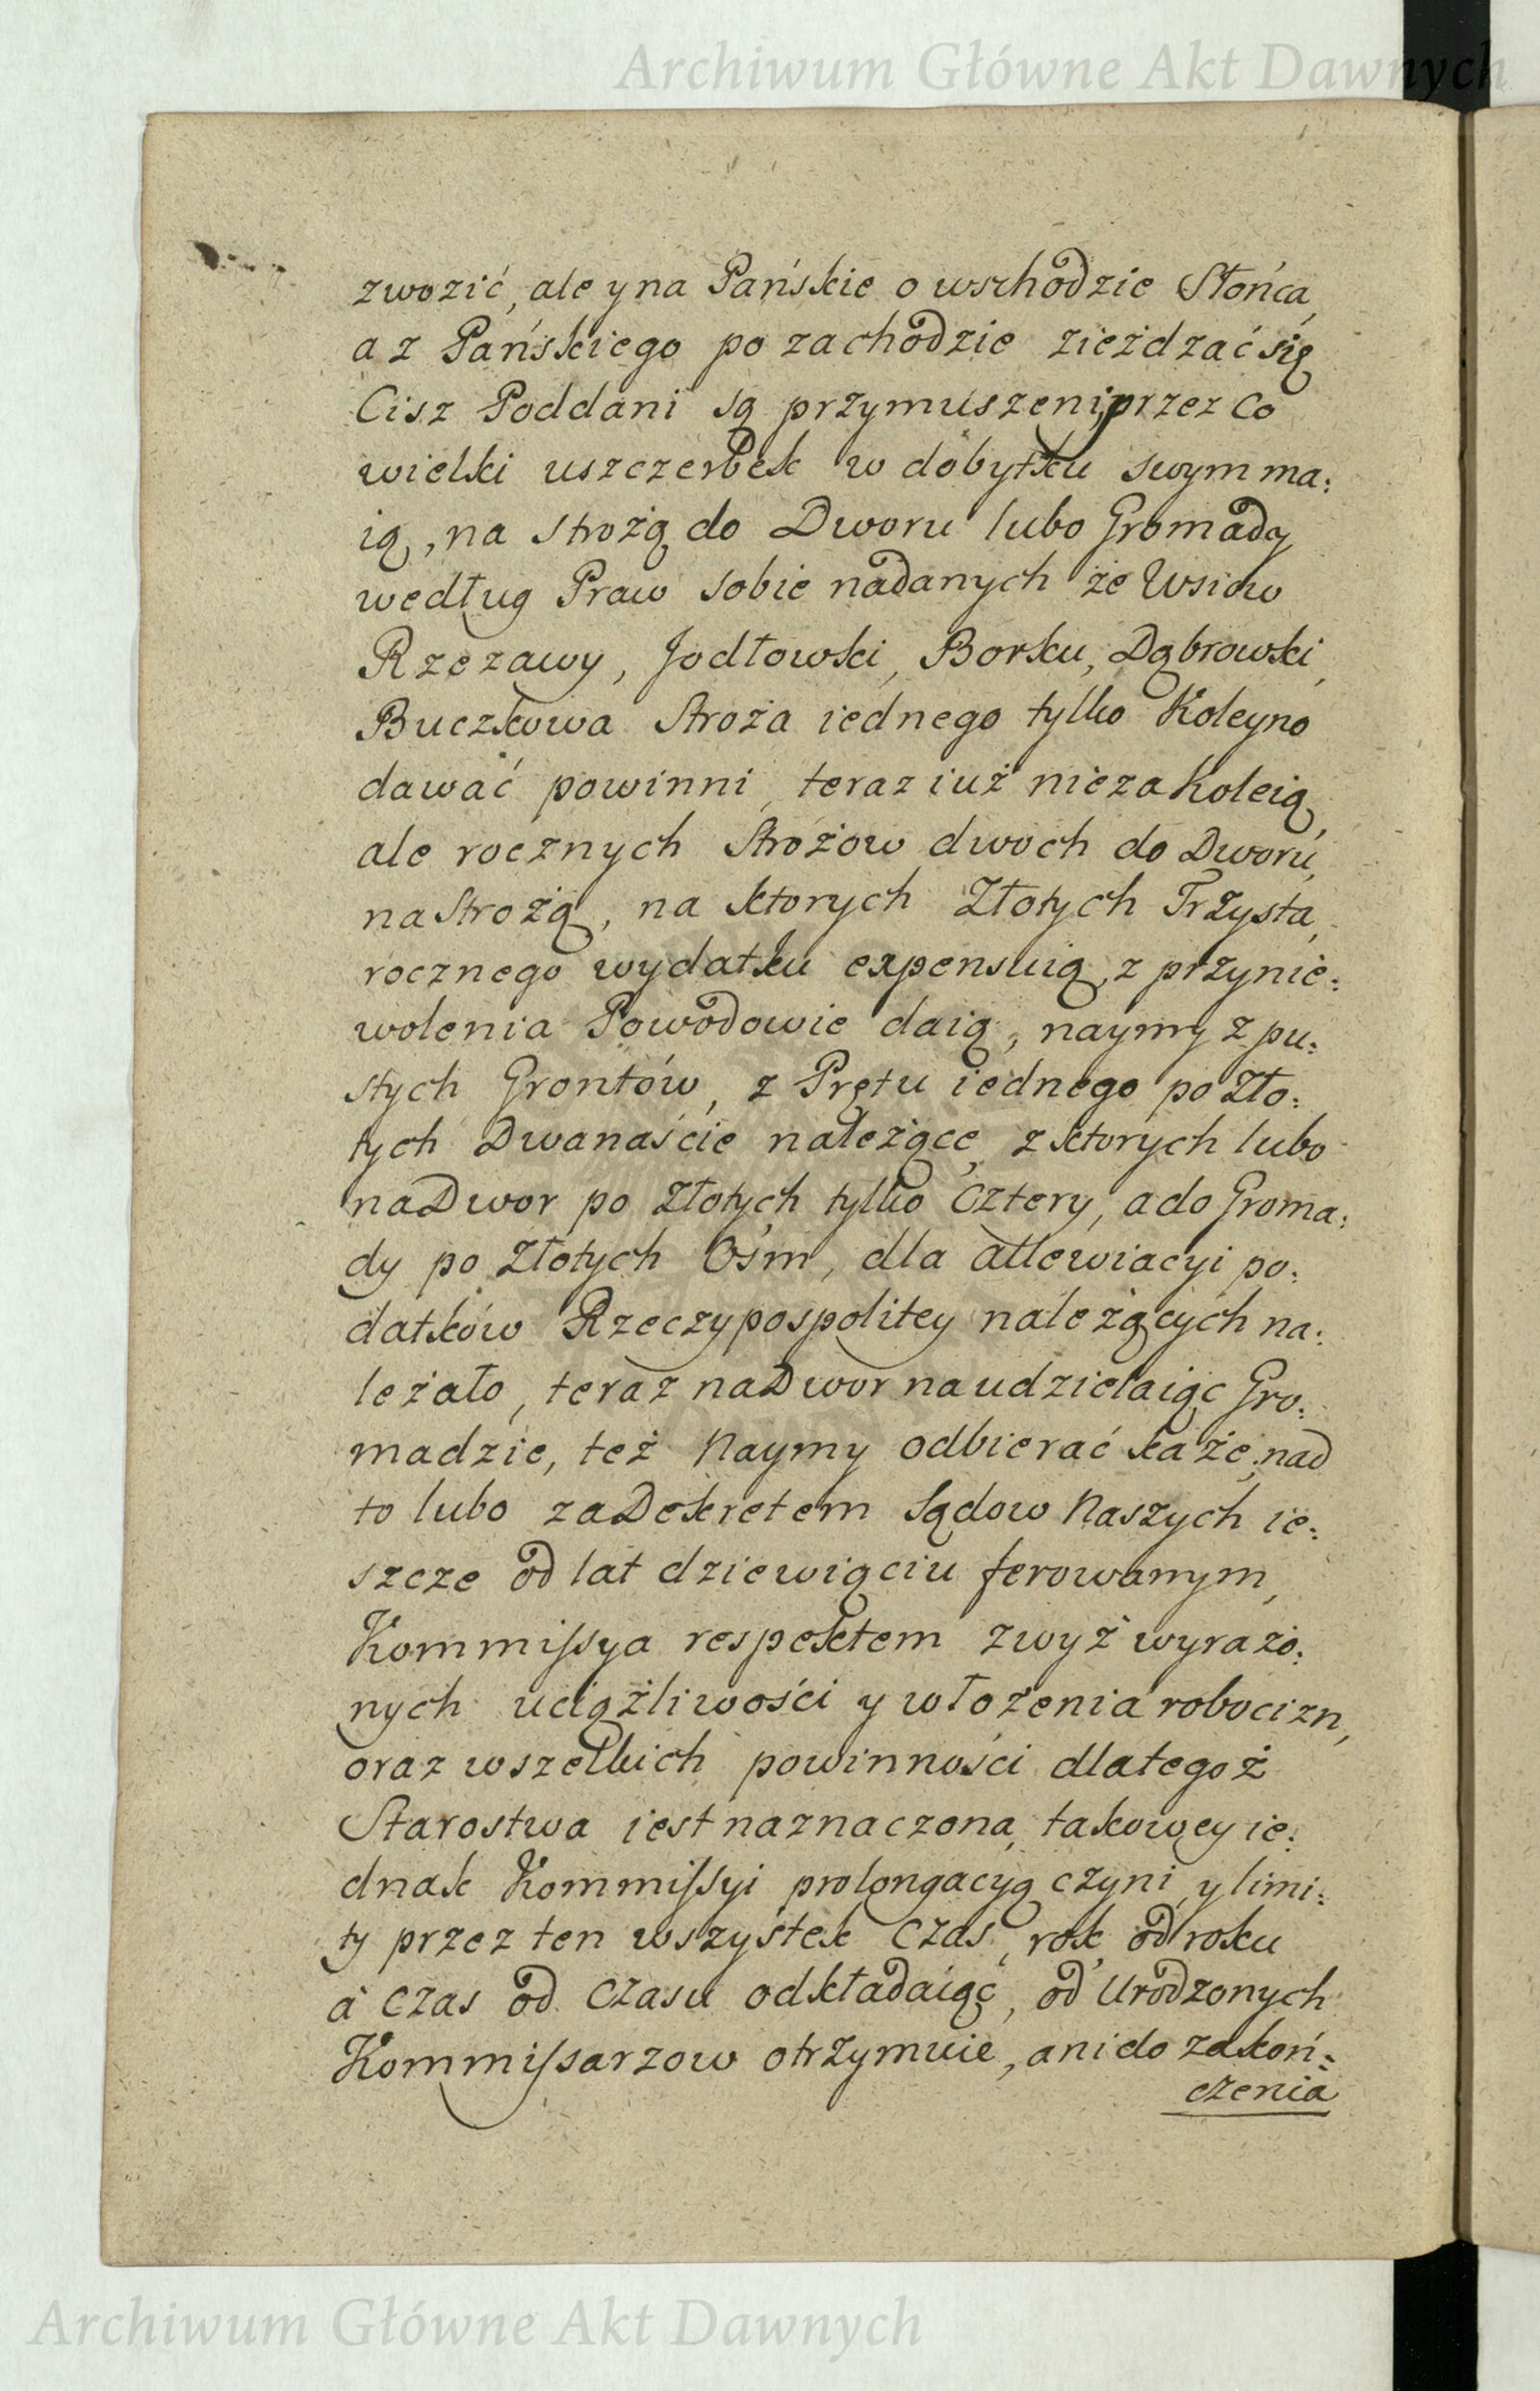 Archiwum Główne Akt Dawnych
zwozić, ale y na Pańskie o wschodzie Słońca,
a z Pańskiego po zachodzie zieżdzać się
Cisz Poddani są przymuszeni, przez co
wielki uszczerbek w dobytku swym ma:
ią, na strożą do Dworu lubo Gromady
według Praw sobie nadanych że Wsiow
Rzezawy, Jodłowski, Borku, Dąbrowski,
Buczkowa Stroża iednego tylko Koleyno
dawać powinni, teraz iuż nie za Koleią,
ale rocznych Strożow dwoch do Dworu,
na Strożą, na ktorych Złotych Trzysta,
rocznego wydatku expensuią, z przynie:
wolenia Powodowie daią, naymy z pu:
stych Grontów, z Prętu iednego po Zło:
tych Dwanaście należące, z ktorych lubo
na Dwor po Złotych tylko Cztery, a do Groma:
dy po Złotych Ośm, dla allewiacyi po:
datków Rzeczypospolitey należących na:
leżało, teraz na Dwor na udzielaiąc Gro:
madzie, też Naymy odbierać każe, nad
to lubo za Dekretem Sądow Naszych ie:
szcze od lat dziewiąciu ferowanym,
Kommissya respektem zwyż wyrażo:
nych uciążliwości y włożenia robocizn,
oraz wszelkich powinności dlategoż
Starostwa iest naznaczona, takowey ie:
dnak Kommissyi prolongacyą czyni, y limi:
ty przez ten wszystek czas, rok od roku
à czas od czasu odkładaiąc, od Urodzonych
Kommissarzow otrzymuie, ani do zakoń:
czenia
Archiwum Główne Akt Dawnych